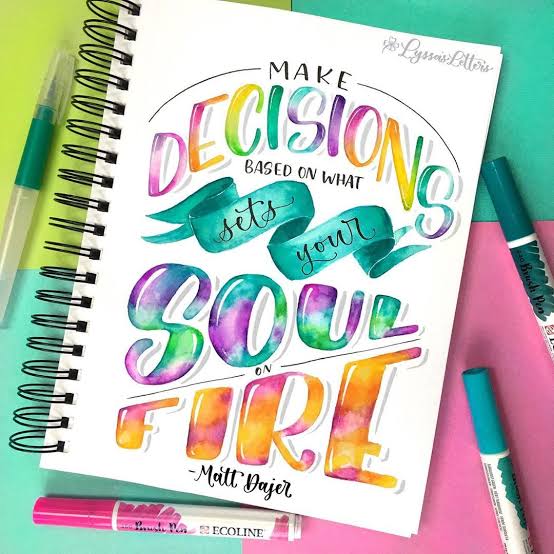 Lyssa's Letters
MAKE
DECISIONS
BASED ON WHAT
sets your
SOUL
ON
FIRE
-Matt Dajer
Brush Pen ECOLINE
Brush Pen